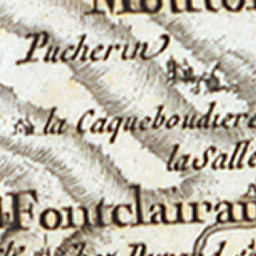 Pucherin
la Caqueboudiere
la Salle
Fontclairau